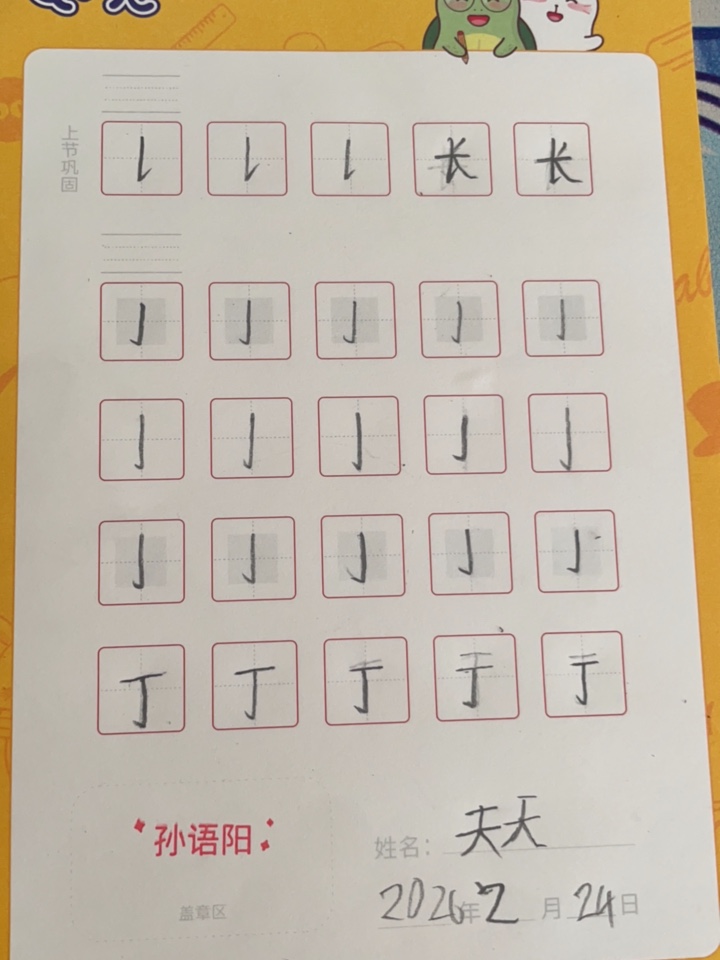 上节巩固
长 长
亅 亅 亅 亅 亅
亅 亅 亅 亅 亅
亅 亅 亅 亅 亅
丁 丁 于 于 于
孙语阳
盖章区
姓名: 天天
2026年2月24日